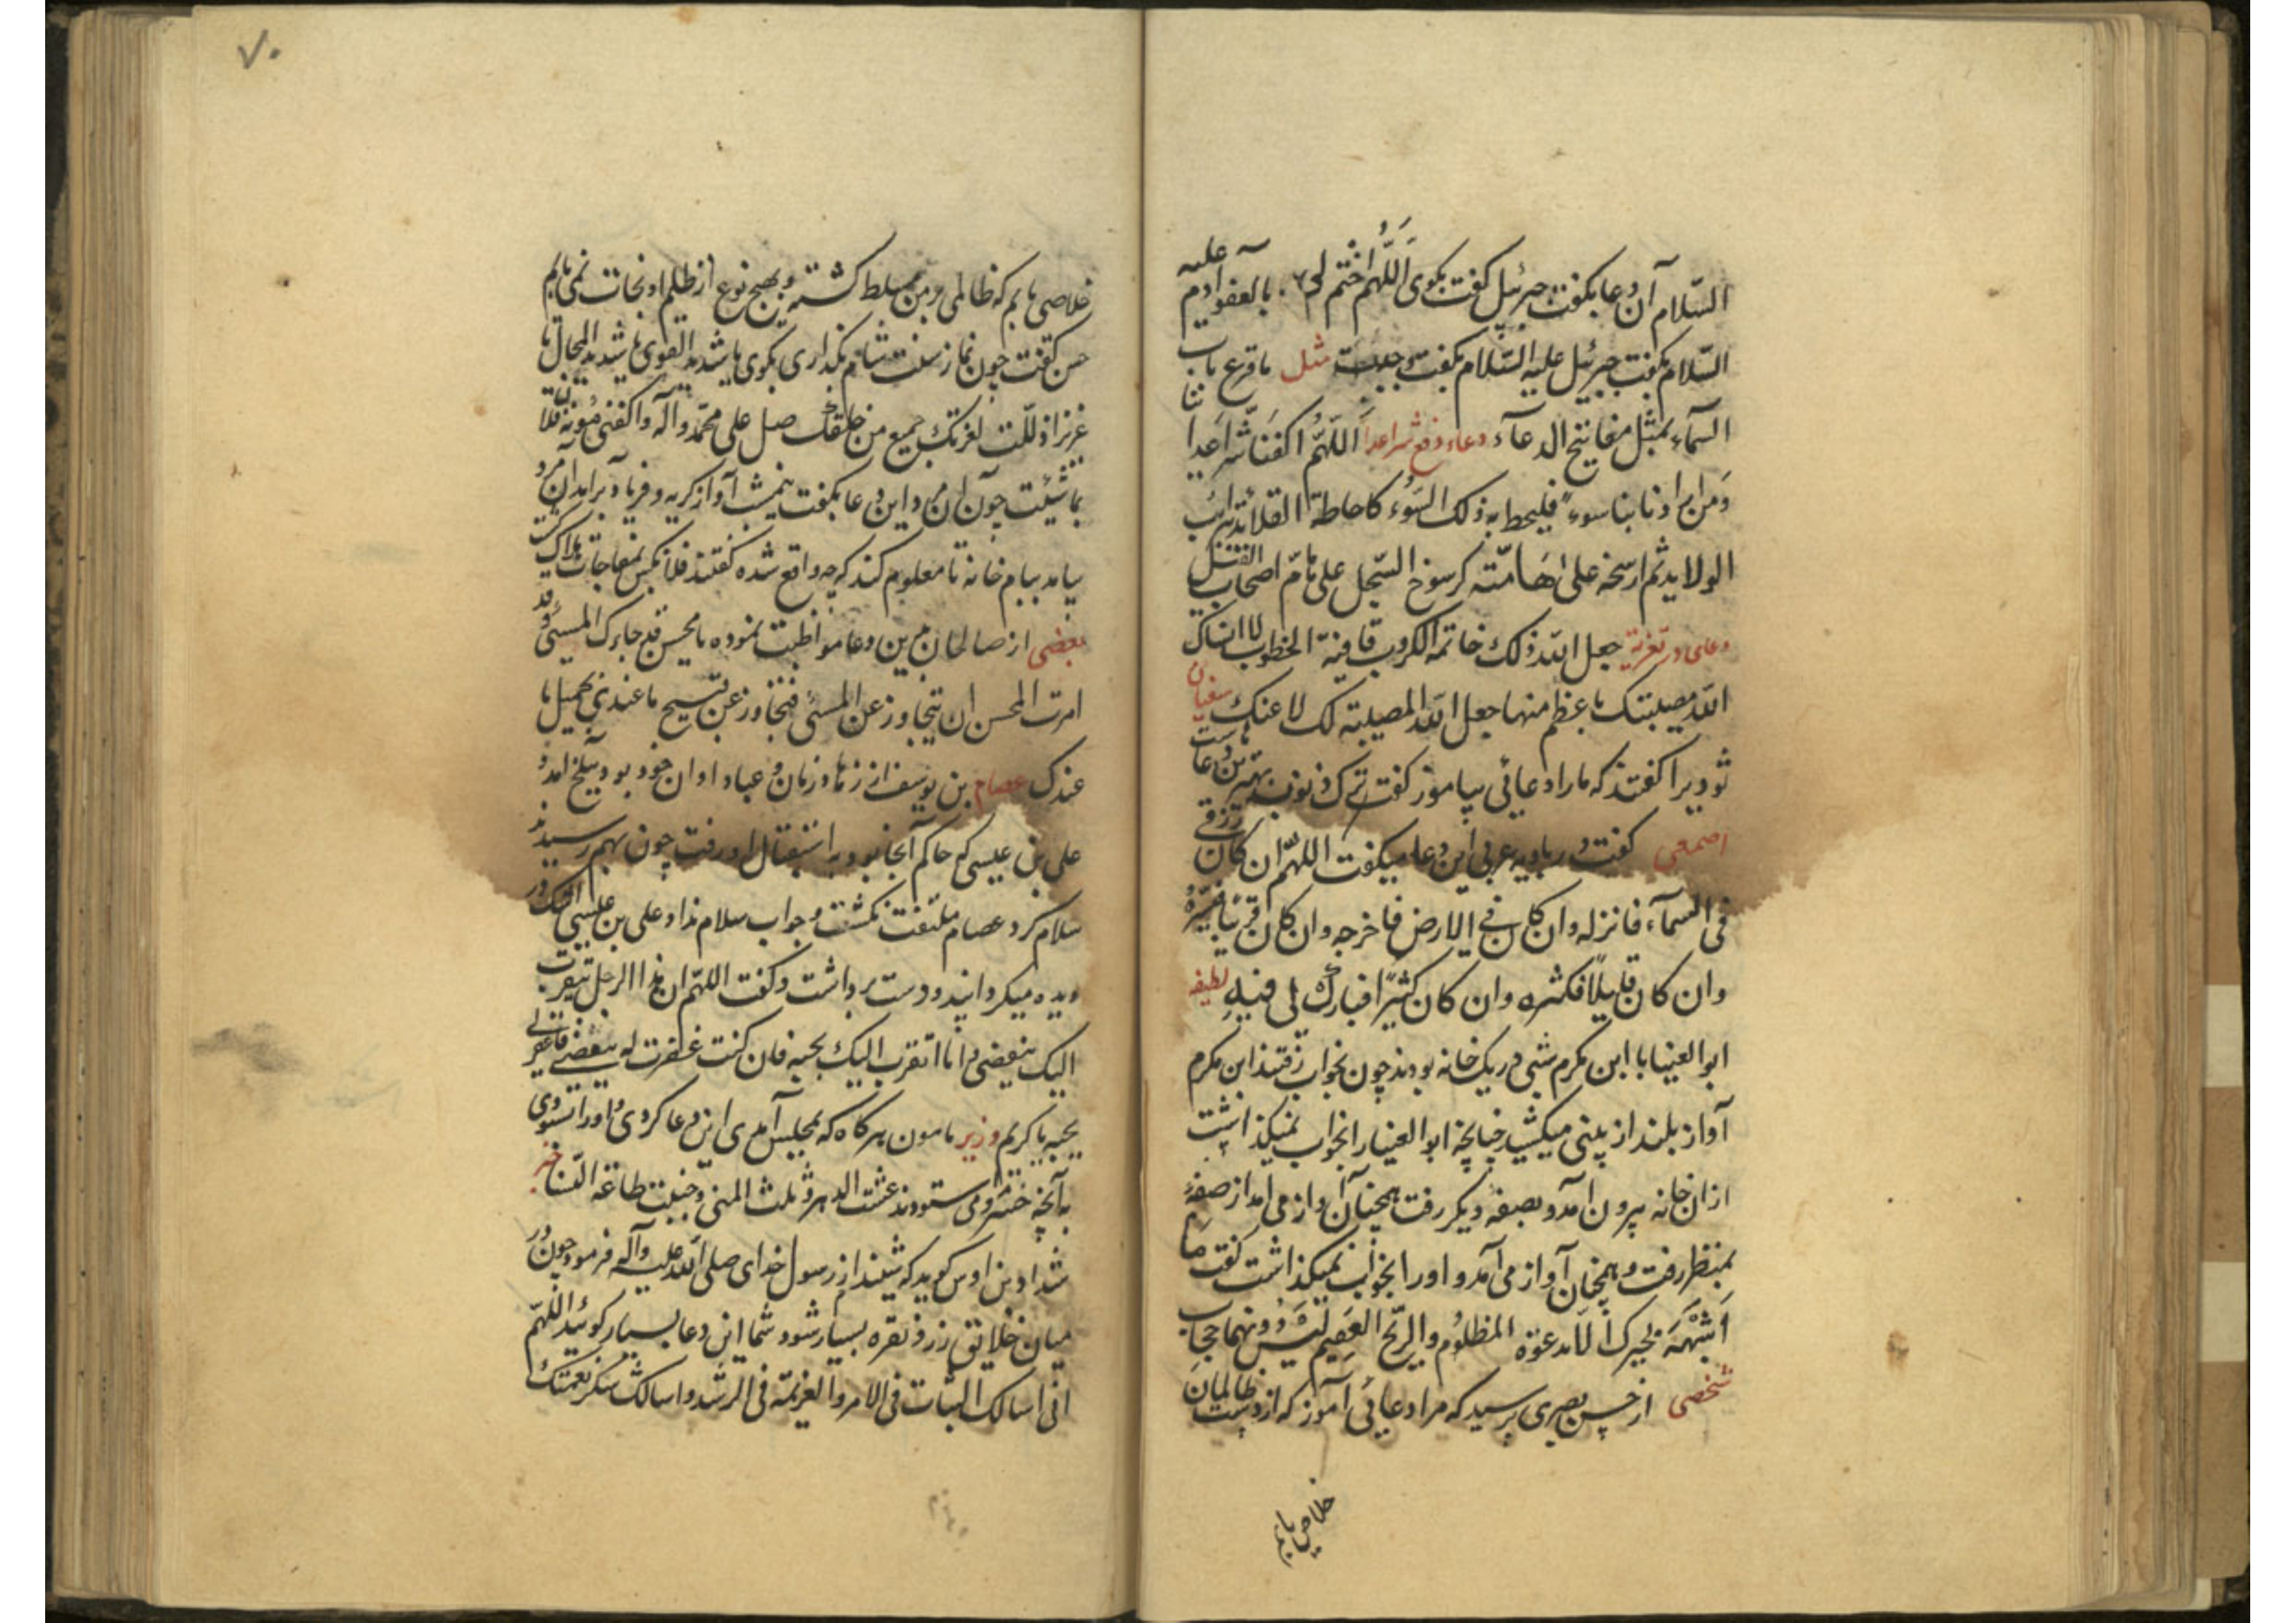 السلام آن دعا بکفت جبرئیل کفت بکوی اَللّهمَّ اختم لی بالعفو آدم علیه
السلام بکفت جبرئیل علیه السلام بکفت وجبت مثل ما قرع باب
السمآء بمثل مفاتیح الدعآء دعاء دفع شر اعدا اَللّهُمَّ اکفنا شر اعدائنا
وَمن ارادنا بنا سوء فلیحط به ذلک السوء کاحاطة القلائد بترائب
الولاید ثم ارسخه علی هَامته کرسوخ السجل علی هام اصحاب الفیل
دعای در تعزیة جعل الله ذلک خاتمة الکروب قافیة الخطوب لا انساک
الله مصیبتک باعظم منها جعل الله المصیبة لک لا عنک سفیان
ثوریرا کفتند که ما را دعائی بیاموز کفت ترک ذنوب بهترین دعاهاست
اصمعی کفت در بادیه عربی این دعا میکفت اللهمّ ان کان رزقی
فی السمآء فانزله وان کان فی الارض فاخرجه وان کان قریبا فیسّره
وان کان قلیلاً فکثره وان کان کثیرًا فبارک لی فیه لطیفه
ابوالعینا با ابن مکرم شبی در یک خانه بودند چون بخواب رفتند ابن مکرم
آواز بلند از بینی میکشید چنانچه ابوالعینا را بخواب نمیکذاشت
از ان خانه بیرون آمد و بصفه دیکر رفت همچنان آواز می امد از صفهٔ
بمنظر رفت و همچنان آواز می آمد و او را بخواب نمیکذاشت کفت مَا
اَشبَهَ نخیرک الا بدعوة المظلوم والریح العقیم لیسَ دونهما حجاب
شخصی از حسن بصری پرسید که مرا دعائی آموز که از دست ظالمان
خلاصی یابم
۷۰
خلاصی یابم که ظالمی بر من مسلط کشته و بهیچ نوع از ظلم او نجات نمی یابم
حسن کفت چون نماز سنت شام بکذاری بکوی یا شدید القوی یا شدید المحال یا
عزیز اذللت لعزتک جمیع من خلقک صل علی محمد وآله واکفنی مؤنة فلان
بما شئت چون آن مرد این دعا بکفت نیمشب آواز کریه و فریاد برآمد آن مرد
بیامد ببام خانه تا معلوم کند که چه واقع شده کفتند فلانکس بمفاجات هلاک کشت
بعضی از صالحان برین دعا مواظبت نموده یا محسن قد جاءک المسیئ وقد
امرت المحسن ان یتجاوز عن المسیئ فتجاوز عن قبیح ما عندی بجمیل ما
عندک عصام بن یوسف از زهاد زمان و عباد اوان خود بود ببلخ آمد و
علی بن عیسی که حاکم آنجا بود به استقبال او رفت چون بهم رسیدند
سلام کرد عصام ملتفت نکشت و جواب سلام نداد علی بن عیسی اشک در
دیده میکردانید و دست برداشت و کفت اللهمّ ان هذا الرجل یتقرب
الیک ببغضی و انا اتقرب الیک بحبه فان کنت غفرت له ببغضی فاغفر لی
بحبه یا کریم وزیر مامون هر کاه که بمجلس آمدی این دعا کردی و او را
شداد بن اوس کوید که شنیدم از رسول خدای صلی الله علیه وآله فرمود چون در
میان خلائق زر و نقره بسیار شود شما این دعا بسیار کوئید اللهمّ
انی اسالک الثبات فی الامر والعزیمة فی الرشد واسالک شکر نعمتک